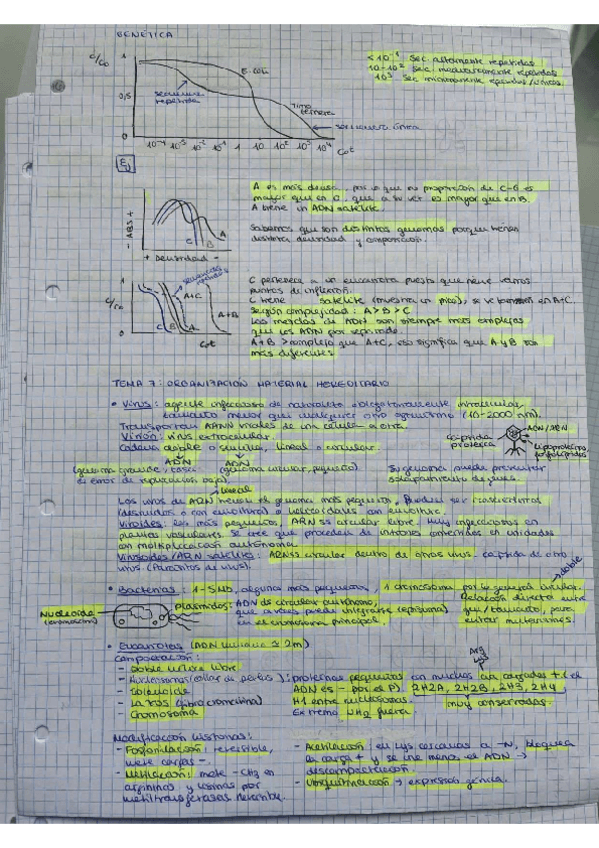 GENÉTICA
C/Co
1
0,5
0
E. coli
secuencia repetida
Timo ternera
secuencia única
10⁻⁴ 10⁻³ 10⁻² 10⁻¹ 1 10 10² 10³ 10⁴ Cot
Sec. altamente repetidas
Sec. medianamente repetidas
Sec. mínimamente repetidas/únicas
Ej
- ABS +
C B A
+ Densidad -
A es más densa, por lo que su proporción de C-G es
mayor que en C, que a su vez es mayor que en B.
A tiene un ADN satélite.
Sabemos que son distintos genomas porque tienen
distinta densidad y composición.
C/Co
secuencias repetidas
A+C
A+B
C B A
Cot
C pertenece a un eucariota puesto que tiene varios
puntos de inflexión.
C tiene satélite (muestra un pico), se ve también en A+C.
Según complejidad: A>B>C
Las mezclas de ADN son siempre más complejas
que los ADN por separado.
A+B > complejo que A+C, eso significa que A y B son
más diferentes.
TEMA 7: ORGANIZACIÓN MATERIAL HEREDITARIO
• Virus: agente infeccioso de naturaleza obligatoriamente intracelular,
tamaño menor que cualquier otro organismo (10-2000 nm).
Transportan AANN virales de una célula a otra.
Virión: virus extracelular.
Cadena doble o simple, lineal o circular.
ADN ADN
(genoma grande, tasa de error de replicación baja) (genoma circular, pequeño)
Cápsida proteica
ADN/ARN
Lipoproteínas, fosfolípidos
Su genoma puede presentar
solapamiento de genes.
lineal
Los virus de ARN tienen el genoma más pequeño. Pueden ser icosaédricos
(desnudos o con envoltura) o helicoidales con envoltura.
Viroides: los más pequeños, ARN ss circular libre. Muy infecciosos en
plantas vasculares. Se cree que proceden de intrones convertidos en unidades
con multiplicación autónoma.
Virusoides/ARN satélites: ARNss circular dentro de otros virus - cápsida de otro
virus (Parásitos de virus).
doble
• Bacterias: 1-5Mb, algunas más pequeñas, 1 cromosoma por lo general circular.
Nucleoide
(cromosoma)
Plásmidos: ADN ds circular autónomo,
que a veces puede integrarse (episoma)
en el cromosoma principal.
Relación directa entre
gen/tamaño, pocos
intrones.
• Eucariotas (ADN humano ≃ 2m)
Compactación:
- Doble hélice libre
- Nucleosomas (collar de perlas): proteínas pequeñas con muchos aa cargados + (el
Arg Lys
- Solenoide
ADN es - por el P). 2H2A, 2H2B, 2H3, 2H4
- Lazos (fibra cromatina)
H1 entre nucleosomas. muy conservadas.
- Cromosoma
Extremo NH2 fuera
Modificación histonas:
- Fosforilación: reversible,
mete cargas -.
- Metilación: mete -CH3 en
argininas y lisinas por
metiltransferasas
- Acetilación: en Lys cercanas a -N, bloquea
la carga + y se une menos al ADN →
descompactación.
- Ubiquitinación → expresión génica.